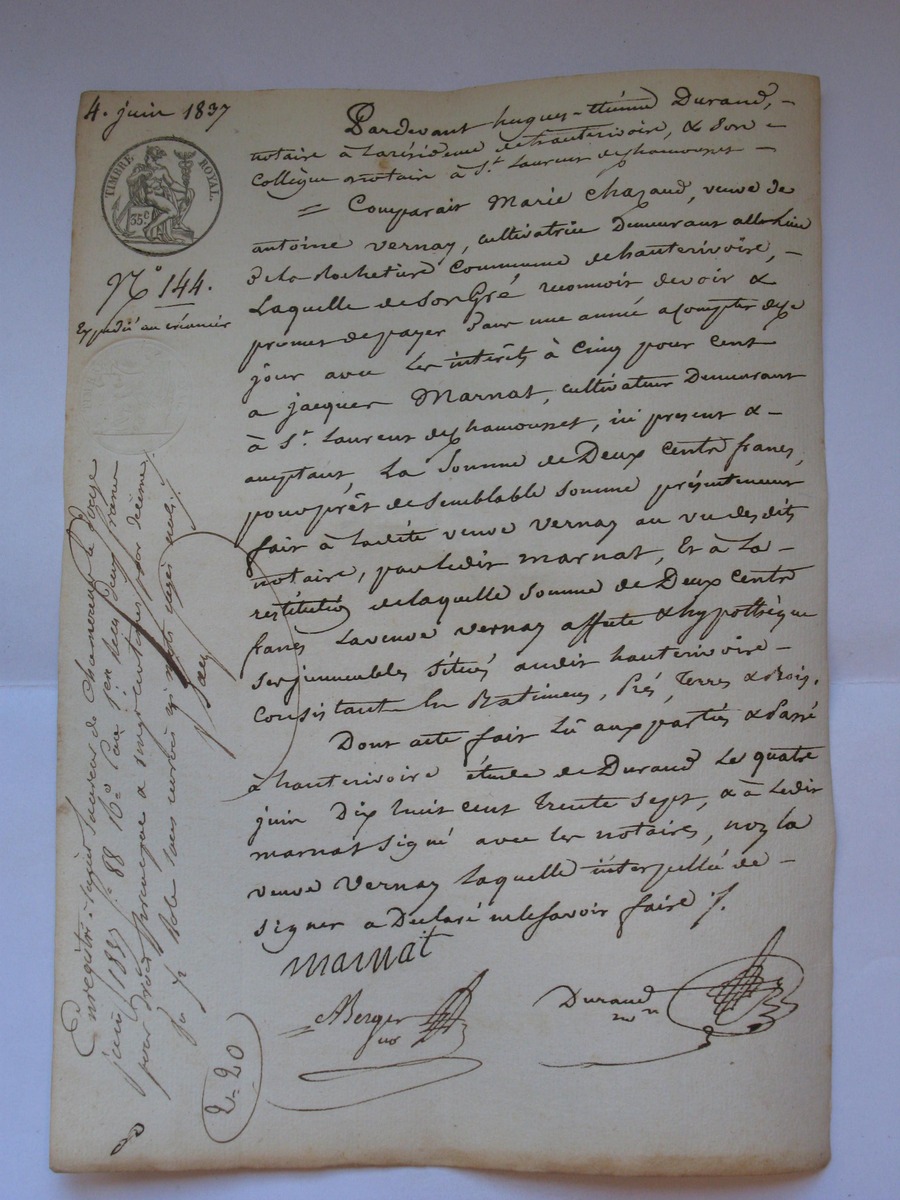 4. juin 1837
TIMBRE ROYAL.
35c
N° 144.
Expédié au créancier
Pardevant hugues-étienne Durand, -
notaire à la résidence de hauterivoire, & son -
Collègue notaire à St. Laurent de chamousset -
= Comparait Marie Chazaud, veuve de
antoine Vernay, cultivatrice Demeurant allo lieu
de la Rochetière Commune de hauterivoire, -
Laquelle de Son Gré reconnoit devoir &
promet de payer dans une année a compter de ce
jour avec les intérêts à cinq pour cent
a jacques Marnat, cultivateur Demeurant
à St. Laurent de chamousset, ici présent & -
acceptant, La Somme de Deux cents francs,
pour prêt de Semblable Somme présentement
fait à La dite veuve Vernay au vu des dits
notaire, par Ledit marnat, Et à La -
restitution de laquelle Somme de Deux cents
francs La veuve Vernay affecte & hypothèque
ses immeubles Situés audit hauterivoire -
Consistant En Batimens, Prés, Terres & Bois.
Dont acte fait Lû aux parties & Passé
à hauterivoire étude de Durand Le quatre
juin Dix huit cent trente Sept, & à Ledit
marnat Signé avec les notaires, non la
veuve Vernay Laquelle interpellée de -
signer a Déclaré ne le Savoir faire ./.
marnat
Berger
nre
Durand
nore
Enregistré à Saint Laurent de Chamousset le Douze
juin 1837 f° 88 R° Case 1ere reçu deux francs
pour Droit principal & vingt centimes pour décime
2-20